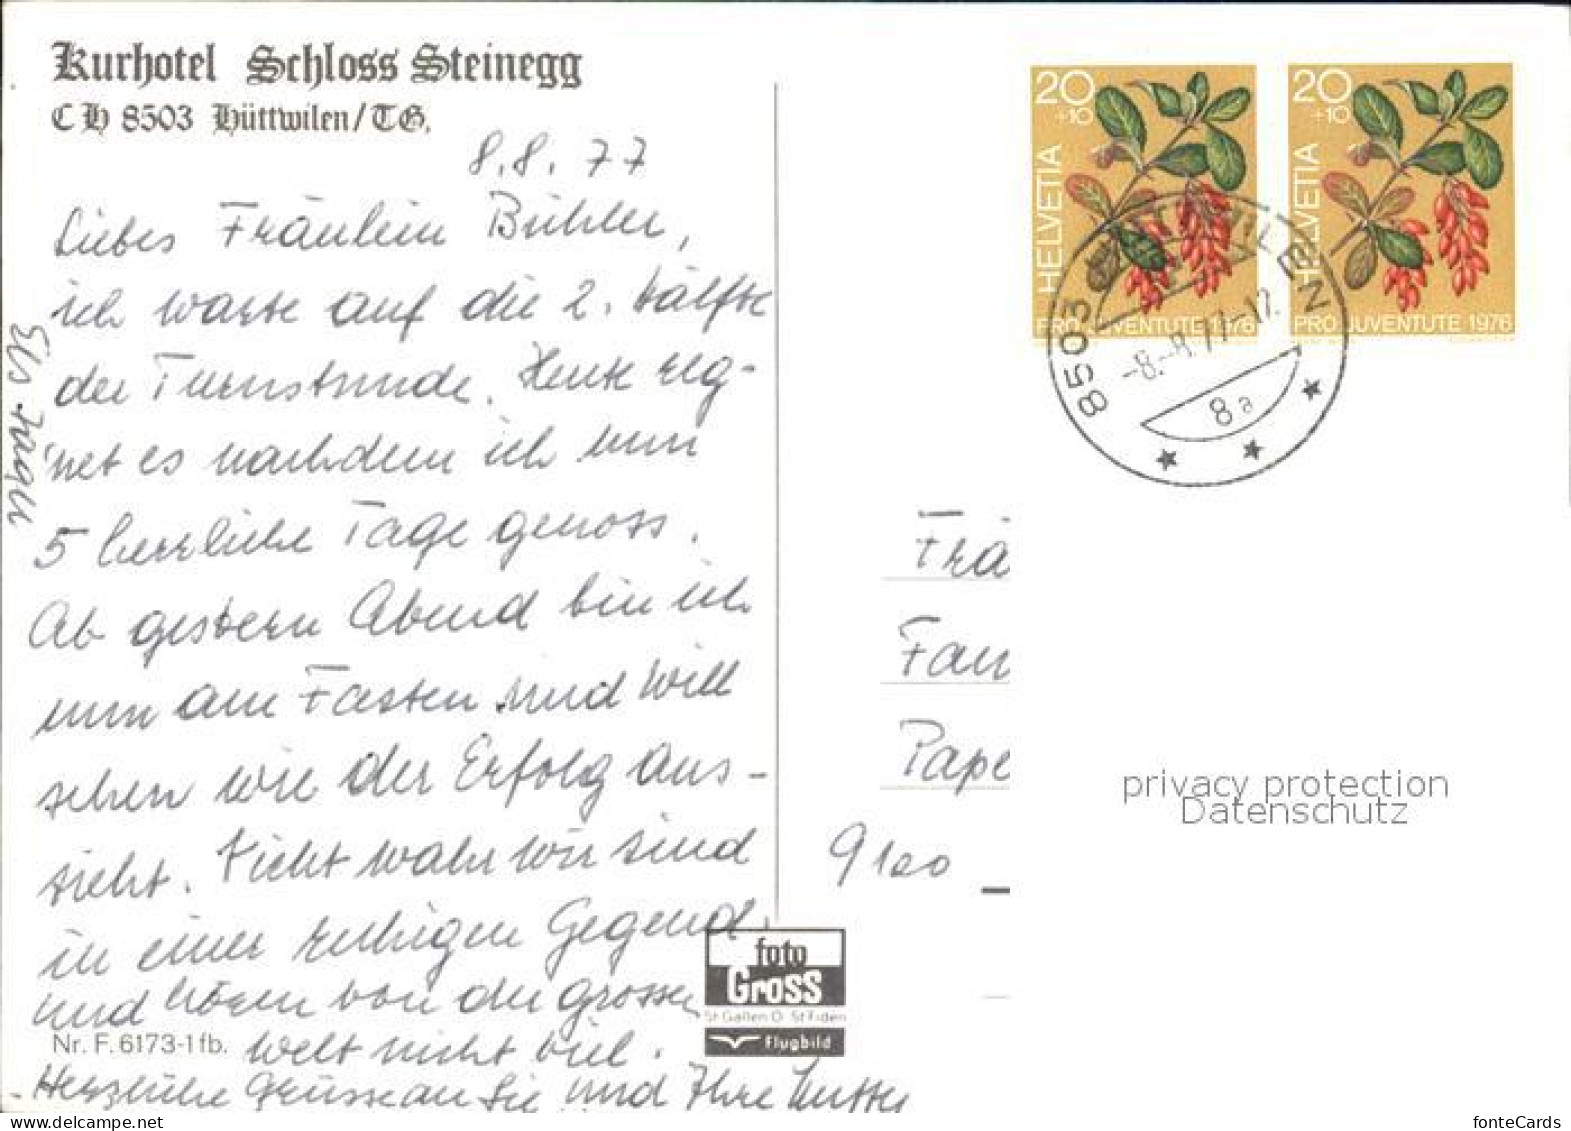 Kurhotel Schloss Steinegg
CH 8503 Hüttwilen/TG.
8.8.77
Liebes Fräulein Bühler,
ich warte auf die 2. Hälfte
der Turnstunde. Heute reg-
net es nachdem ich nun
5 herrliche Tage genoss.
Ab gestern Abend bin ich
nun am Fasten und will
sehen wie der Erfolg aus-
sieht. Nicht wahr wir sind
in einer ruhigen Gegend,
und hören von der grossen
Welt nicht viel.
Herzliche Grüsse an Sie und Ihre Mutter
Nr. F. 6173-1fb.
foto
Gross
St Gallen O St Fiden
Flugbild
20
+10
HELVETIA
PRO JUVENTUTE 1976
20
+10
HELVETIA
PRO JUVENTUTE 1976
8503 HÜTTWILEN
-8.-8.77-17
8a
Frä
Fam
Pape
9100
privacy protection
Datenschutz
fonteCards